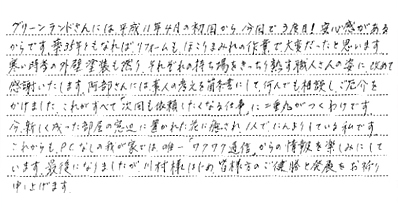 グリーンランドさんには平成11年4月の初回から、今回で3度目！安心感がある
からです。築33年ともなればリフォームも ほこりまみれの作業で大変だったと思います。
寒い時季の外壁塗装も然り。それぞれの持ち場をきっちり熟す職人さんの姿に 改めて
感謝いたします。阿部さんには素人の考えを前にして、何んでも相談し、ご厄介を
かけました。これがすべて 次回も依頼したくなる仕事に二重丸がつくわけです。
今、新しく成った部屋の窓辺に置かれた花に癒され、1人でにんまりしている私です。
これからも、PCなしの我が家では唯一"ワクワク通信"からの情報を楽しみにして
います。最後になりましたが 川村様はじめ 皆様方のご健勝と発展をお祈り
申し上げます。